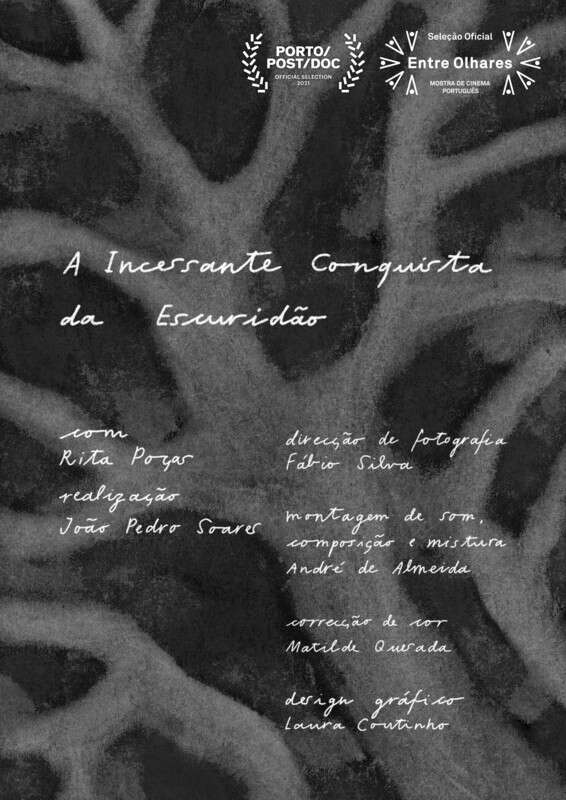 PORTO/
POST/DOC
OFFICIAL SELECTION
2021
Seleção Oficial
Entre Olhares
MOSTRA DE CINEMA
PORTUGUÊS
A Incessante Conquista
da Escuridão
com
Rita Poças
realização
João Pedro Soares
direcção de fotografia
Fábio Silva
montagem de som,
composição e mistura
André de Almeida
correcção de cor
Matilde Quesada
design gráfico
Laura Coutinho